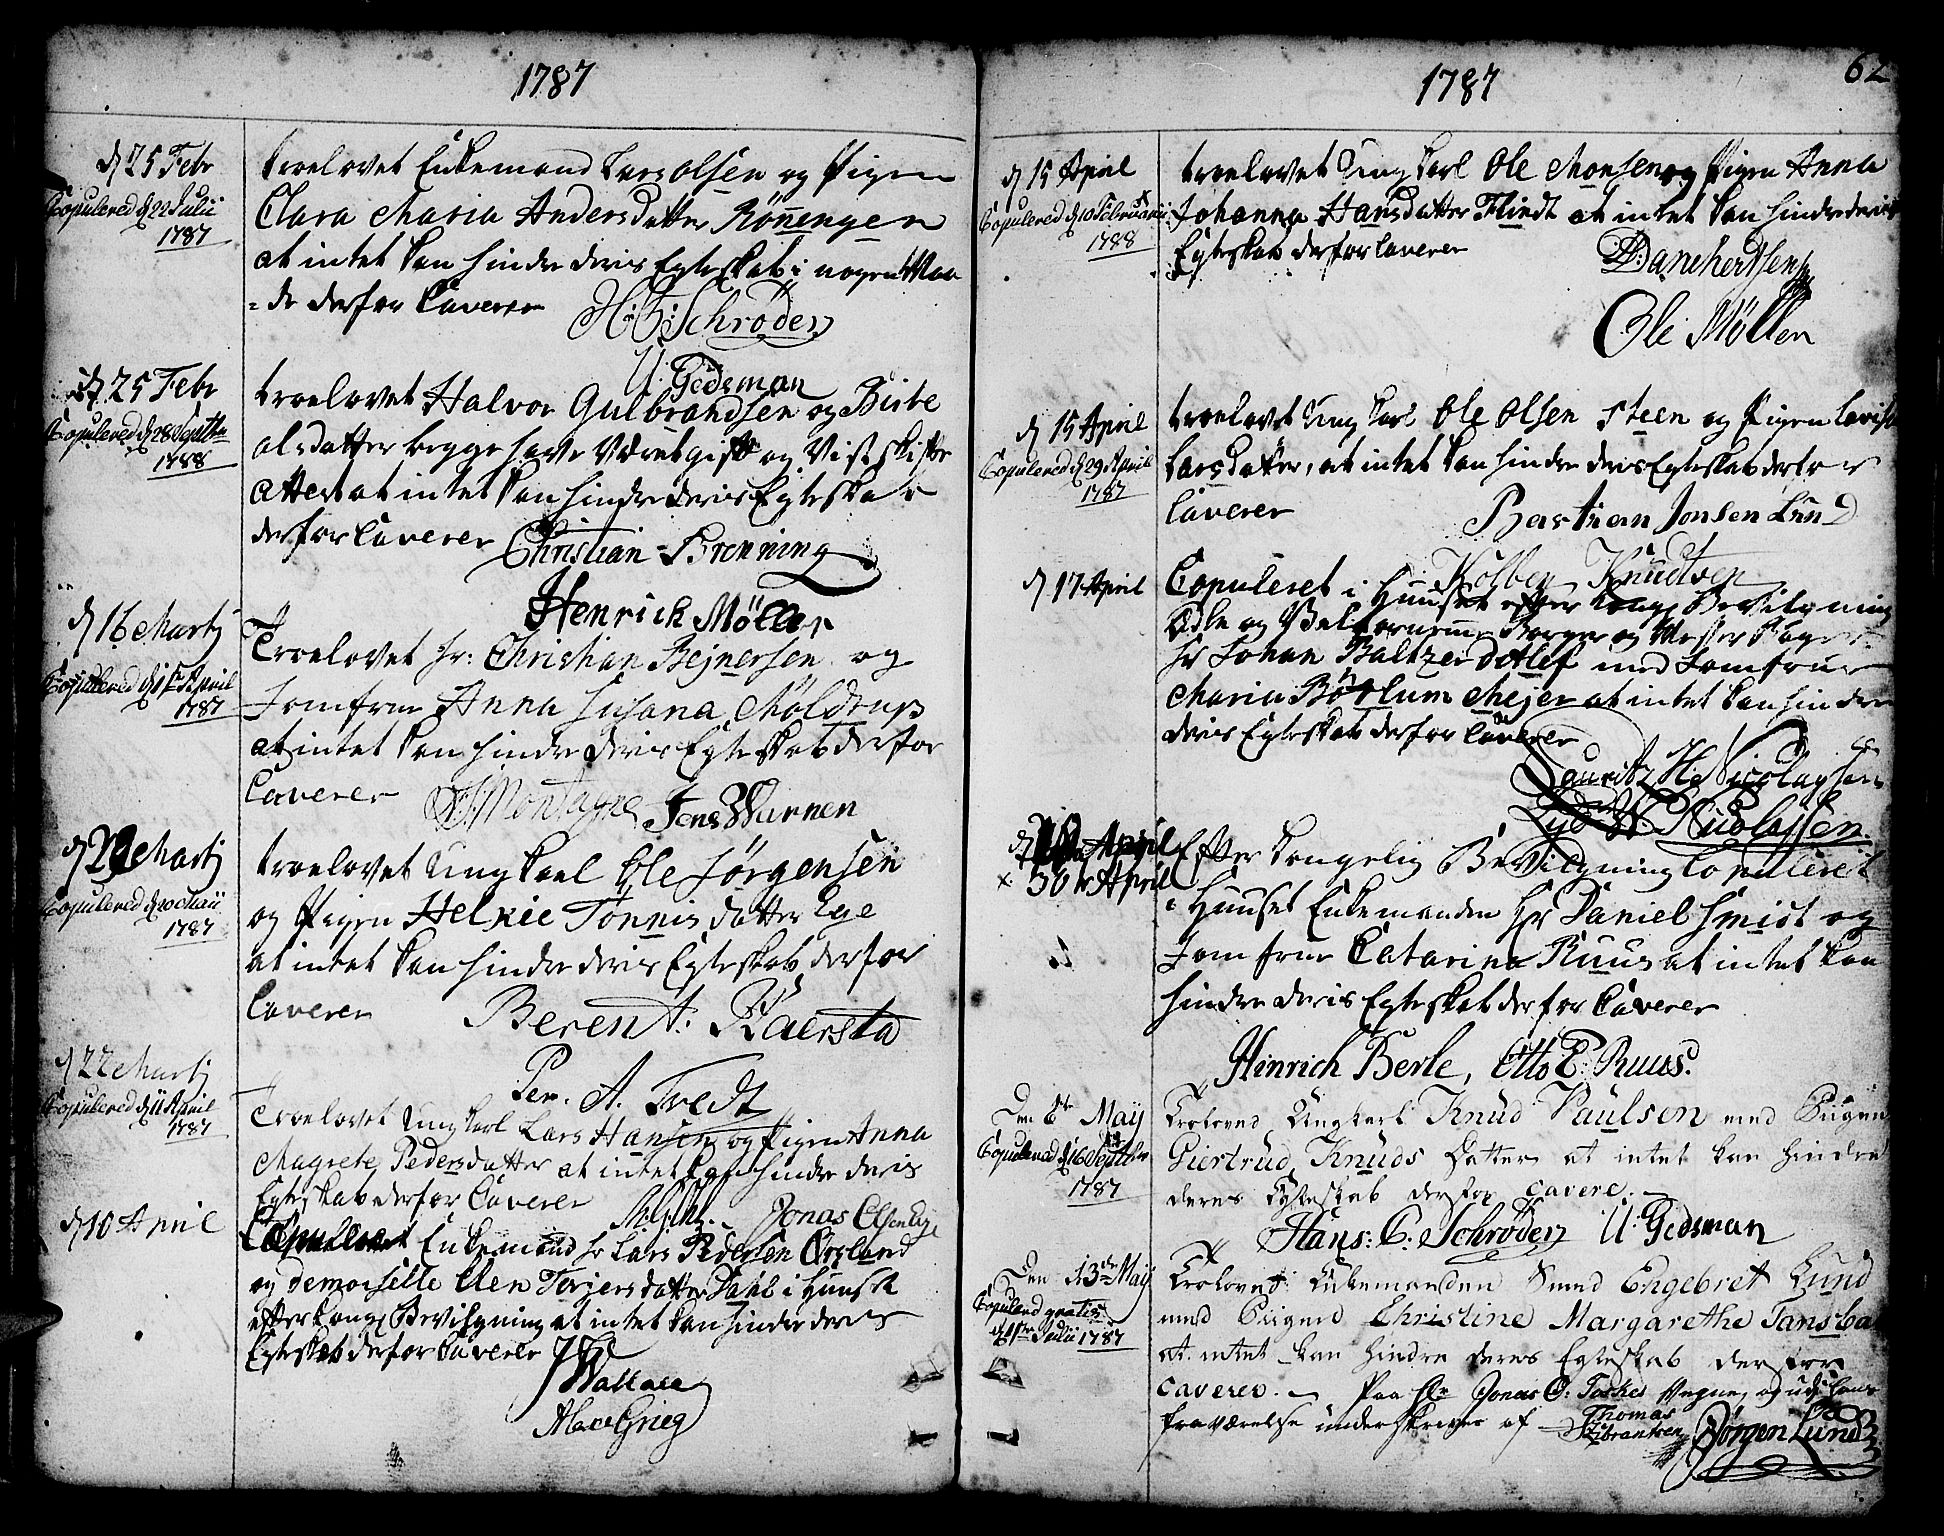 1787
d 25 Febr
Copulered d 22 Julii
1787
troelovet Enkemand Lars Olsen og Pigen
Clara Maria Andersdatter Rönnengen
at intet kan hindre deris Egteskab i nogen Maa
=de derfor Caverer
H: C: Schrøder
U. Gedsman
d. 25 Febr
Copulered d 28 Septbr
1788
troelovet Halvor Gulbrandsen og Birte
olsdatter begge have Været gift og Vist skifte
attest at intet kan hindre deris Egteskab
derfor Caverer
Christian Brenning
Henrich Möller
d 16 Martj
Copulered d 15 April
1787
Troelovet Hr: Christian Bejnersen og
Jomfrue Anna Susana Möldrup
at intet kan hindre deris Egteskab derfor
Caverer
Montagne Jens Warnen
d 29 Martj
Copulered d 20 Maii
1787
troelovet Ungkarl Ole Jörgensen
og Pigen Helkie Tönnisdatter Ege
at intet kan hindre deris Egteskab derfor
Caverer
Berent A: Kaersta
Per. A. Tredt
d 22 Martj
Copulered d 11 April
1787
Troelovet Ungkarl Lars Hansen og Pigen Anna
Magrete Pedersdatter at intet kan hindre deris
Egteskab derfor Caverer
Jonas Olsen
d 10 April
Copulleret Enkemand Hr Lars Pedersen Örsland
og demoiselle Elen Terjersdatter Dahl i Huuset
efter Kong: Bevilgning at intet kan hindre deris
Egteskab derfor Caverer
J Wallace
Alexr Grieg
1787
62
d 15 April
Copulered d 10 Februarii
1788
troelovet Ungkarl Ole Monsen og Pigen Anna
Johanna Hansdatter Flindt at intet kan hindre deris
Egteskab derfor Caverer
D: Danchertsen
Ole Möller
d 15 April
Copulered d 29 April
1787
troelovet Ungkarl Ole Olsen Steen og Pigen Lovisa
Larsdatter, at intet kan hindre deris Egteskab derfor
Caverer
Bastian Jonsen Lund
Kolben Knudtsen
d 17 April
Copuleret i Huuset efter Kong: Bevilgning
Ædle og Velfornemme Borger og Mester Bager
Hr Johan Baltzer Dotlef med Jomfrue
Maria Böttlum Mejer at intet kan hindre
deris Egteskab derfor Caverer
Lauritz H: Nicolaysen
Lyd W. Nicolaysen
April
x 30te April
Efter Kongelig Bevilgning Copuleret
i Huuset Enkemanden Hr Daniel Smidt og
Jomfrue Catarina Ruus at intet kan
hindre deris Egteskab derfor Caverer
Hinrich Berle, Otto E: Ruus.
Den 8de May
Copulered d 16 Septbr
1787
Troloved Ungkarl Knud Paulsen med Pigen
Giertrud Knuds Datter at intet kan hindre
deres Egteskab derfor cavere.
Hans: C: Schrøder U. Gedsman
Den 13de May
Copulered gratis
d 1ste Julii 1787
Trolovet Enkemanden Smed Engebret Lund
med Piigen Christine Margarethe
at intet kan hindre deres Egteskab derfore
caverer. Paa Hr Jonas O: Vegne, og udi hans
fraværelse underskrevet af
Thomas
Zibrantsen
Jörgen Lund